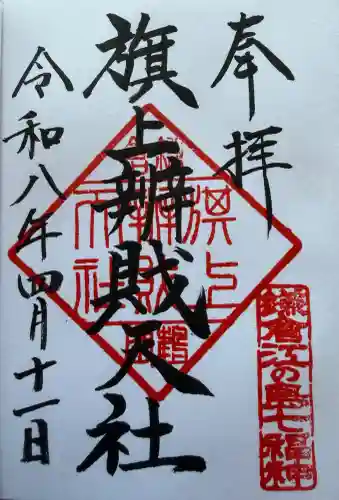 奉拝
旗上辨財天社
令和八年四月十一日
鎌倉江の島七福神